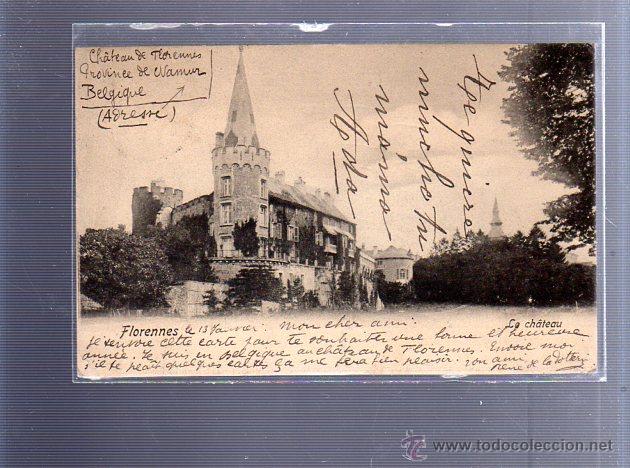 Château de Florennes
Province de Namur
Belgique
(Adresse)
Te quiere
mucho tu
mama
Ada
Florennes, le 13 Janvier. Mon cher ami.
Le château
Je t'envoie cette carte pour te souhaiter une bonne et heureuse
année. Je suis en Belgique au château de Florennes. Envoie moi
s'il te plait quelques cartes, ça me fera bien plaisir. ton ami
René de la
www.todocoleccion.net